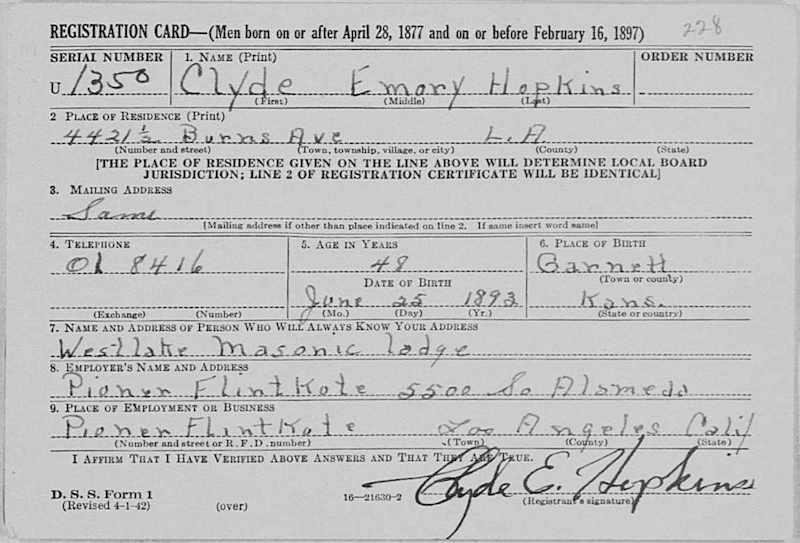 REGISTRATION CARD—(Men born on or after April 28, 1877 and on or before February 16, 1897) 228
SERIAL NUMBER 1. NAME (Print) ORDER NUMBER
U 1350 Clyde Emory Hopkins
(First) (Middle) (Last)
2 PLACE OF RESIDENCE (Print)
4421½ Burns Ave L.A.
(Number and street) (Town, township, village, or city) (County) (State)
[THE PLACE OF RESIDENCE GIVEN ON THE LINE ABOVE WILL DETERMINE LOCAL BOARD
JURISDICTION; LINE 2 OF REGISTRATION CERTIFICATE WILL BE IDENTICAL]
3. MAILING ADDRESS
Same
[Mailing address if other than place indicated on line 2. If same insert word same]
4. TELEPHONE 5. AGE IN YEARS 6. PLACE OF BIRTH
Ol 8416 48 Garnett
DATE OF BIRTH (Town or county)
June 25 1893 Kans.
(Exchange) (Number) (Mo.) (Day) (Yr.) (State or country)
7. NAME AND ADDRESS OF PERSON WHO WILL ALWAYS KNOW YOUR ADDRESS
Westlake Masonic lodge
8. EMPLOYER'S NAME AND ADDRESS
Pioner FlintKote 5500 So Alameda
9. PLACE OF EMPLOYMENT OR BUSINESS
Pioner FlintKote Los Angeles Calif
(Number and street or R. F. D. number) (Town) (County) (State)
I AFFIRM THAT I HAVE VERIFIED ABOVE ANSWERS AND THAT THEY ARE TRUE.
Clyde E. Hopkins
D. S. S. Form 1
(Revised 4-1-42) (over) 16—21630-2 (Registrant's signature)